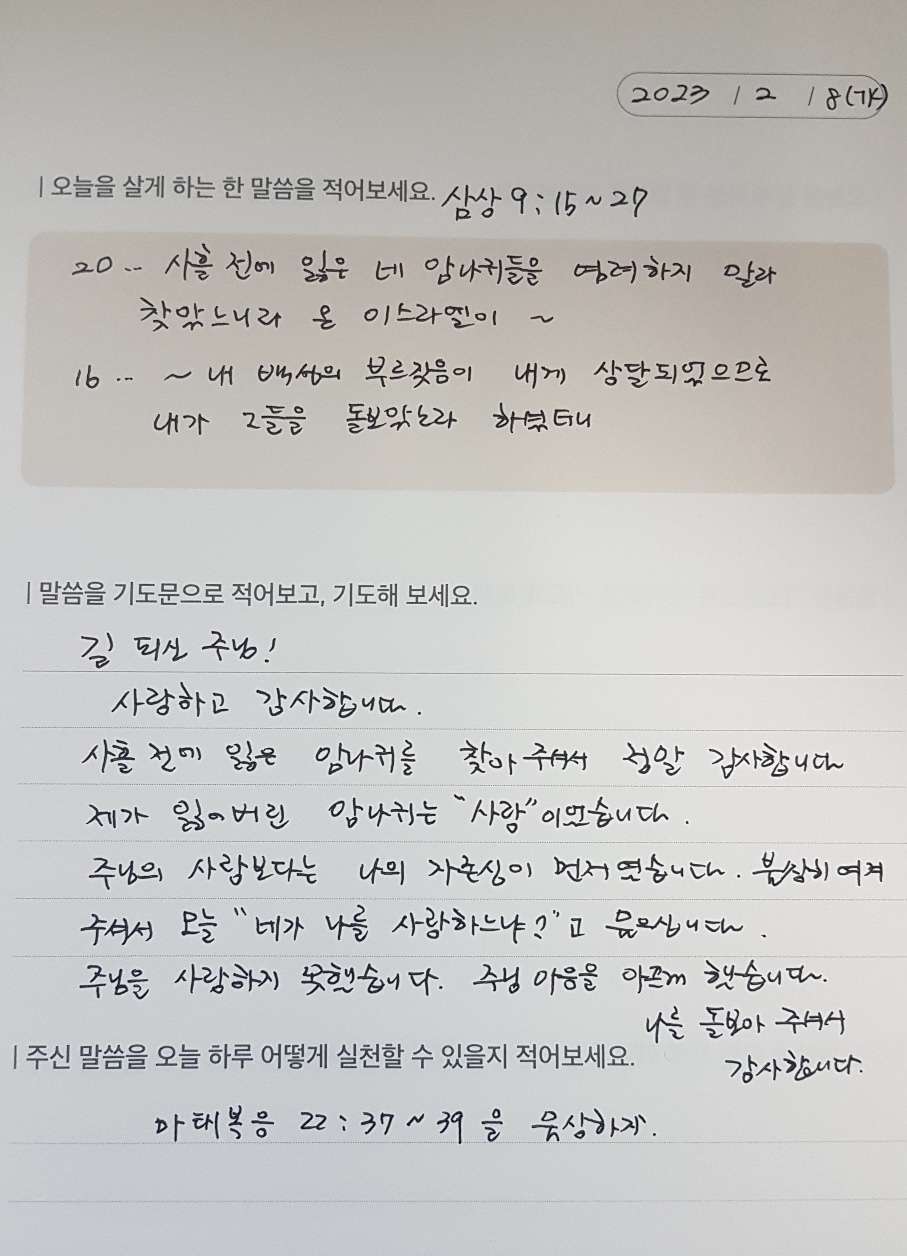 2023 / 2 / 8(수)
| 오늘을 살게 하는 한 말씀을 적어보세요. 삼상 9:15~27
20 .. 사흘 전에 잃은 네 암나귀들을 염려하지 말라
찾았느니라 온 이스라엘이 ~
16 ... ~ 내 백성의 부르짖음이 내게 상달되었으므로
내가 그들을 돌보았노라 하셨더니
| 말씀을 기도문으로 적어보고, 기도해 보세요.
길 되신 주님!
사랑하고 감사합니다.
사흘 전에 잃은 암나귀를 찾아 주셔서 정말 감사합니다
제가 잃어버린 암나귀는 "사랑"이었습니다.
주님의 사랑보다는 나의 자존심이 먼저였습니다. 불쌍히 여겨
주셔서 오늘 "네가 나를 사랑하느냐?"고 물으십니다.
주님을 사랑하지 못했습니다. 주님 마음을 아프게 했습니다.
나를 돌보아 주셔서
감사합니다.
| 주신 말씀을 오늘 하루 어떻게 실천할 수 있을지 적어보세요.
마태복음 22:37~39 을 묵상하자.